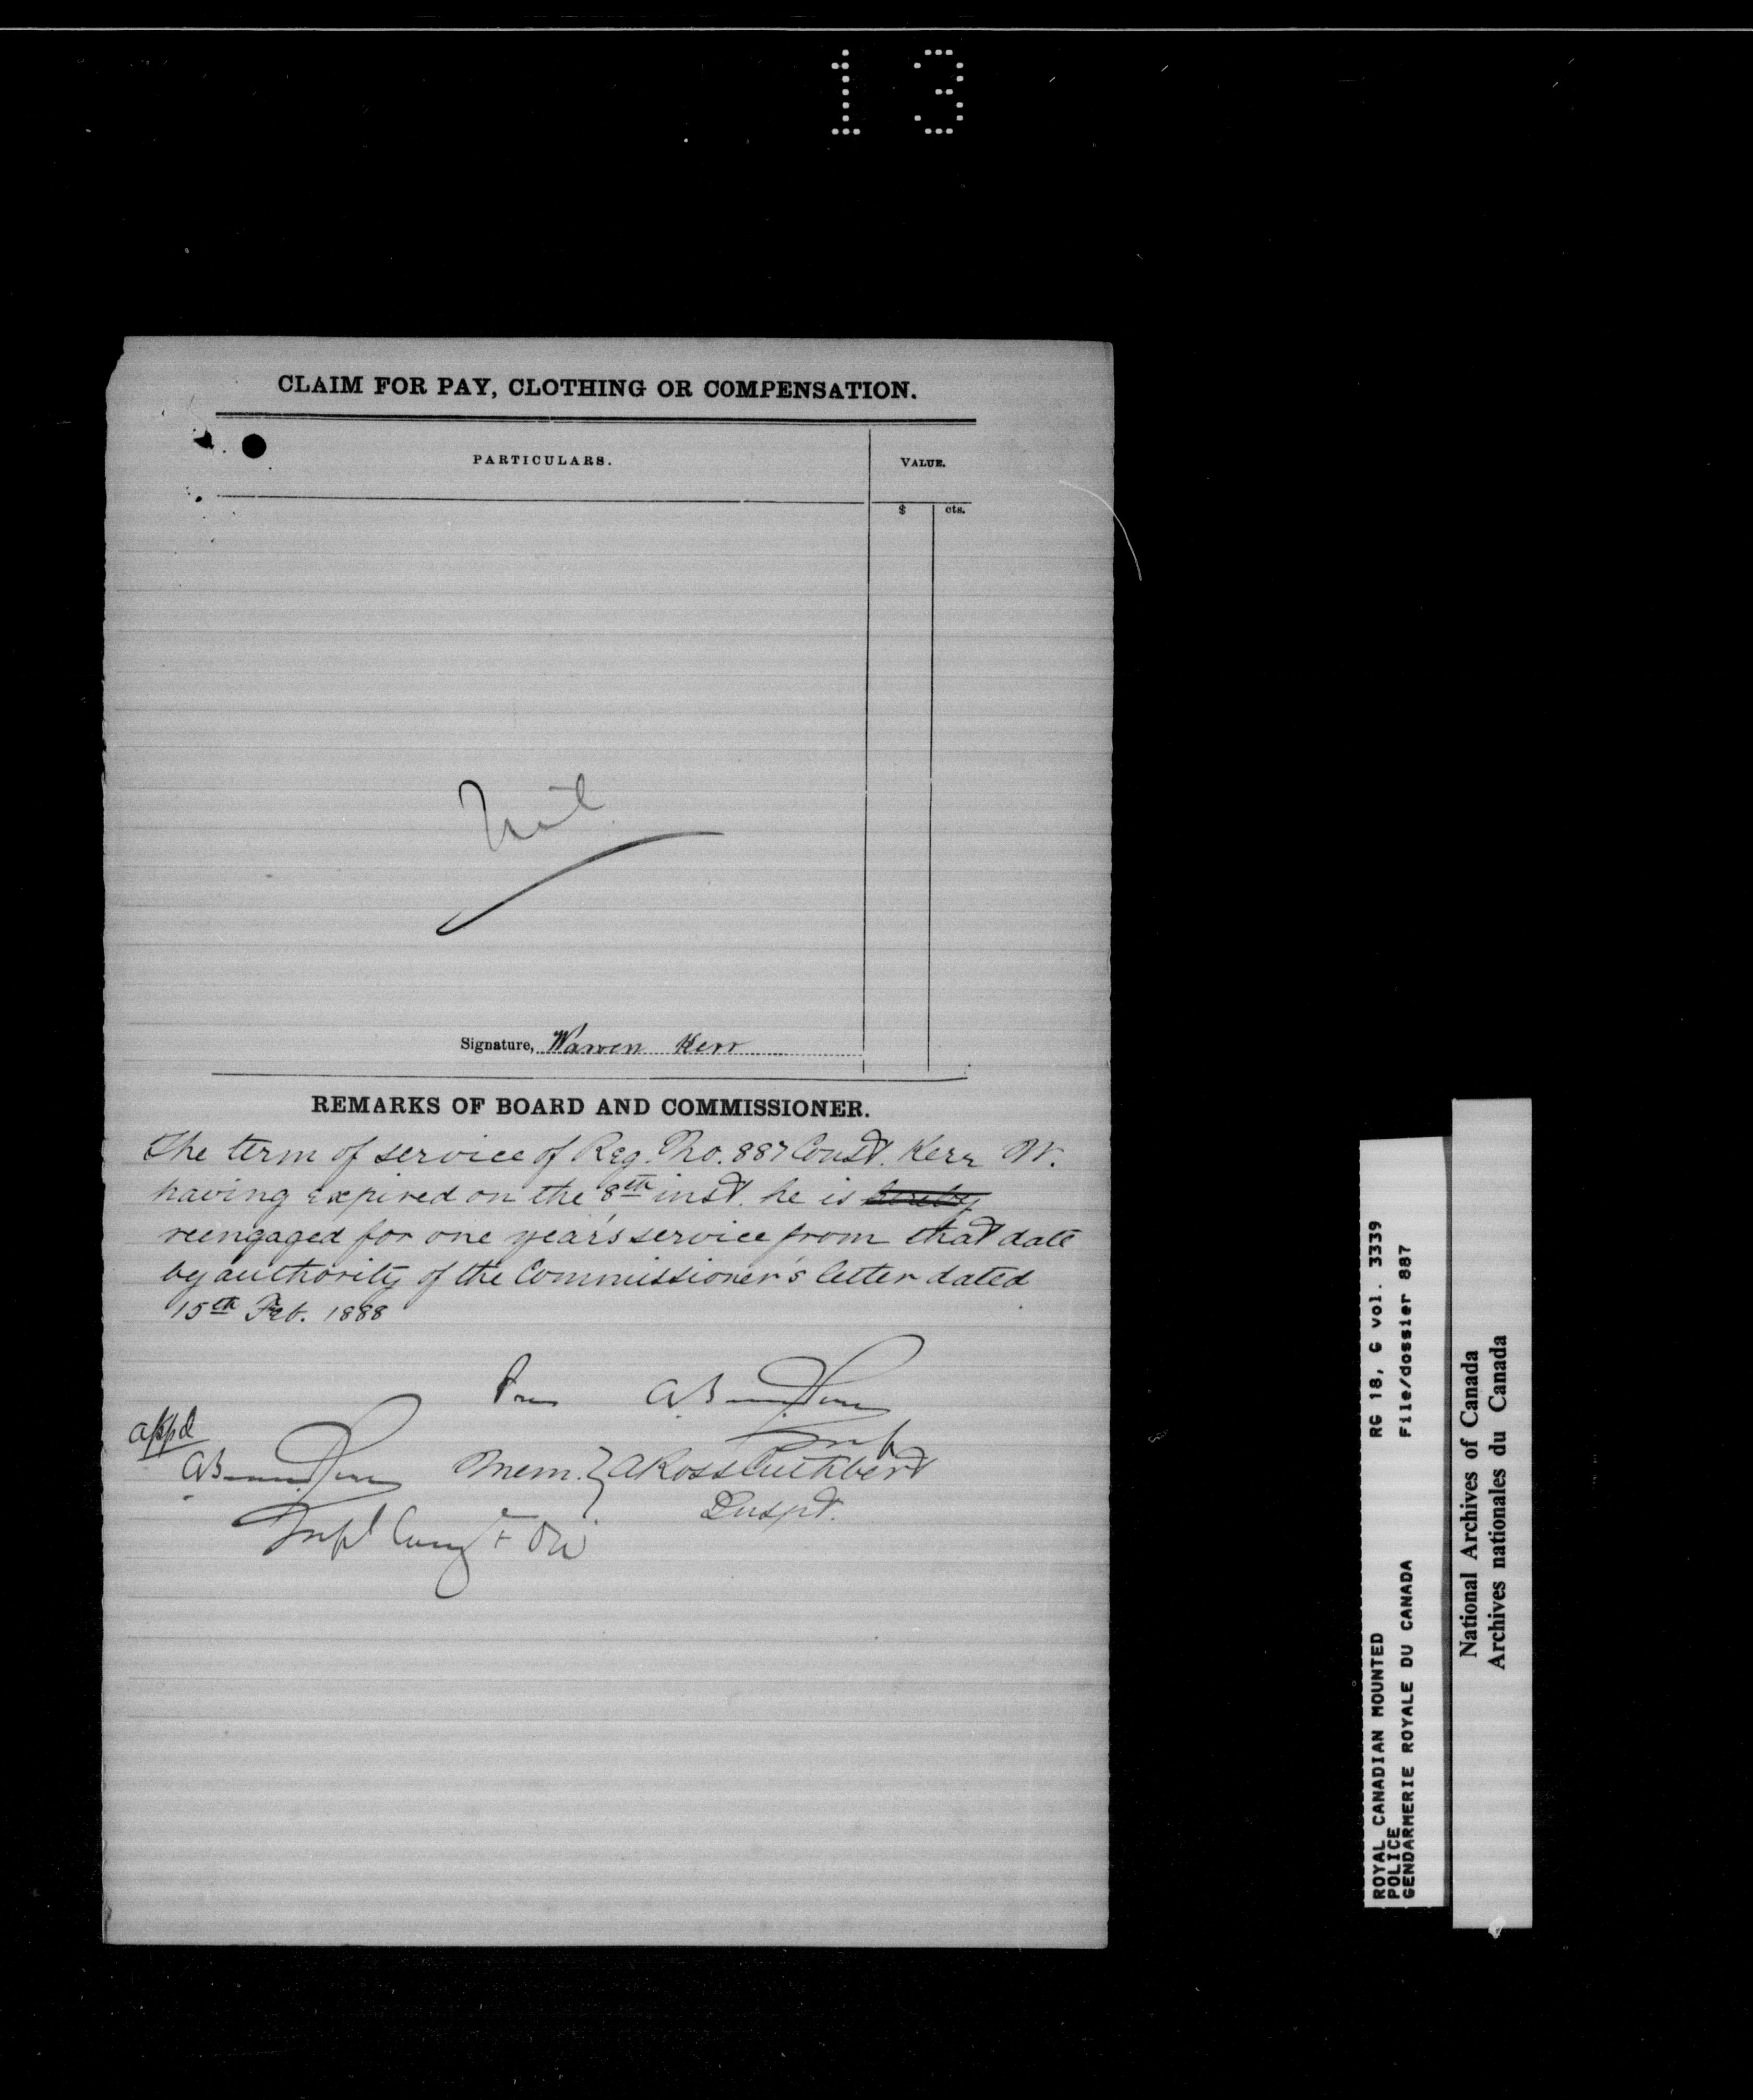 13
CLAIM FOR PAY, CLOTHING OR COMPENSATION.
PARTICULARS. VALUE.
$ cts.
Nil
Signature, Warren Kerr
REMARKS OF BOARD AND COMMISSIONER.
The term of service of Reg. No. 887 Const. Kerr W.
having expired on the 8th inst. he is hereby
reengaged for one year's service from that date
by authority of the Commissioner's letter dated
15th Feb. 1888
Pres
appd
Mem. } A Ross Cuthbert
Inspt.
ROYAL CANADIAN MOUNTED RG 18, G vol. 3339
POLICE
GENDARMERIE ROYALE DU CANADA File/dossier 887
National Archives of Canada
Archives nationales du Canada